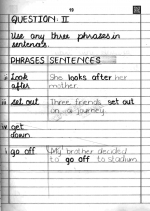 19
QUESTION: II
Use any three phrases in
sentences.
PHRASES SENTENCES
i Look after She looks after her
mother.
ii set out Three friends set out
on a journey.
iv get
down
i go off My brother decided
to go off to stadium.